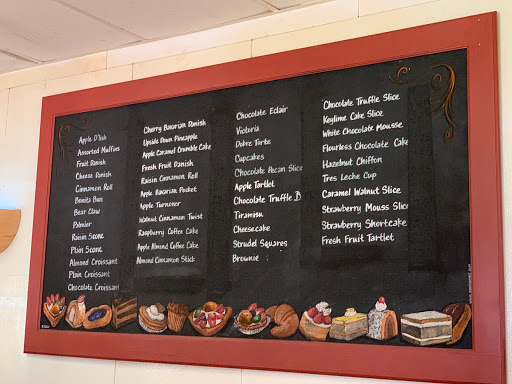 Apple D'lish
Assorted Muffins
Fruit Danish
Cheese Danish
Cinnamon Roll
Benita Bun
Bear Claw
Palmier
Raisin Scone
Plain Scone
Almond Croissant
Plain Croissant
Chocolate Croissant
Cherry Bavarian Danish
Upside Down Pineapple
Apple Caramel Crumble Cake
Fresh Fruit Danish
Raisin Cinnamon Roll
Apple Bavarian Pocket
Apple Turnover
Walnut Cinnamon Twist
Raspberry Coffee Cake
Apple Almond Coffee Cake
Almond Cinnamon Stick
Chocolate Eclair
Victoria
Dobre Torte
Cupcakes
Chocolate Pecan Slice
Apple Tartlet
Chocolate Truffle B
Tiramisu
Cheesecake
Strudel Squares
Brownie
Chocolate Truffle Slice
Keylime Cake Slice
White Chocolate Mousse
Flourless Chocolate Cake
Hazelnut Chiffon
Tres Leche Cup
Caramel Walnut Slice
Strawberry Mouss Slice
Strawberry Shortcake
Fresh Fruit Tartlet